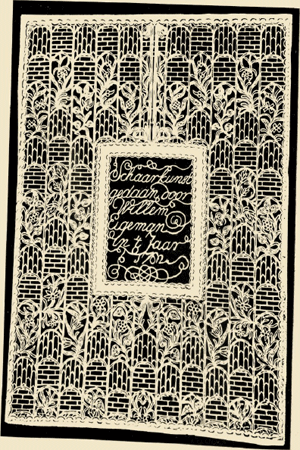 Schaarkunst
gedaan door
Willem
geman
in 't Jaar